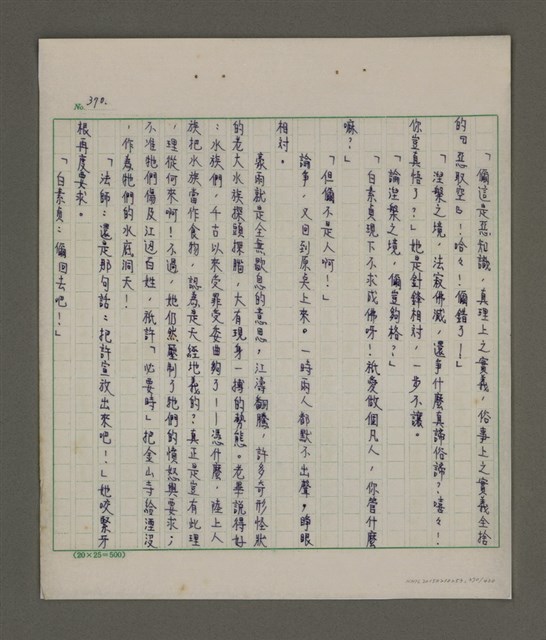 No. 370.
「偭這是惡知識，真理上之實義，俗事上之實義全捨
的『惡取空』！哈々！偭錯了！」
「涅槃之境，法寂佛滅，還爭什麼真諦俗諦？嘻々！
你豈真悟了？」她是針鋒相對，一步不讓。
「論涅槃之境，偭豈夠格？」
「白素貞現下不求成佛呀！祇愛做個凡人，你管什麼
嘛？」
「但偭不是人啊！」
論事，又回到原奌上來。一時兩人都默不出聲，睜眼
相対。
豪雨就是全無歇息的意思，江濤翻騰，許多奇形怪狀
的老大水族探頭探腦，大有現身一搏的勢態。老畢說得好
：水族們，千古以來受罪受委曲夠了！——憑什麼，陸上人
族把水族當作食物，認為是天經地義的？真正是豈有此理
，理從何來啊！不過，她仍然壓制了牠們的憤怒與要求；
不准牠們傷及江邊百姓，祇許「必要時」把金山寺給湮沒
，作為牠們的水底洞天！
「法師：還是那句話：把許宣放出來吧！」她咬緊牙
根再度要求。
「白素貞：偭回去吧！」
(20×25=500)